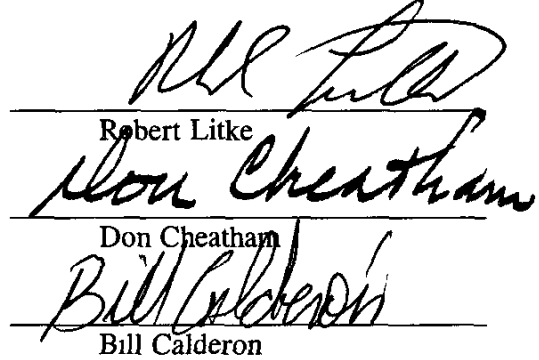 Robert Litke
Don Cheatham
Don Cheatham
Bill Calderon
Bill Calderon